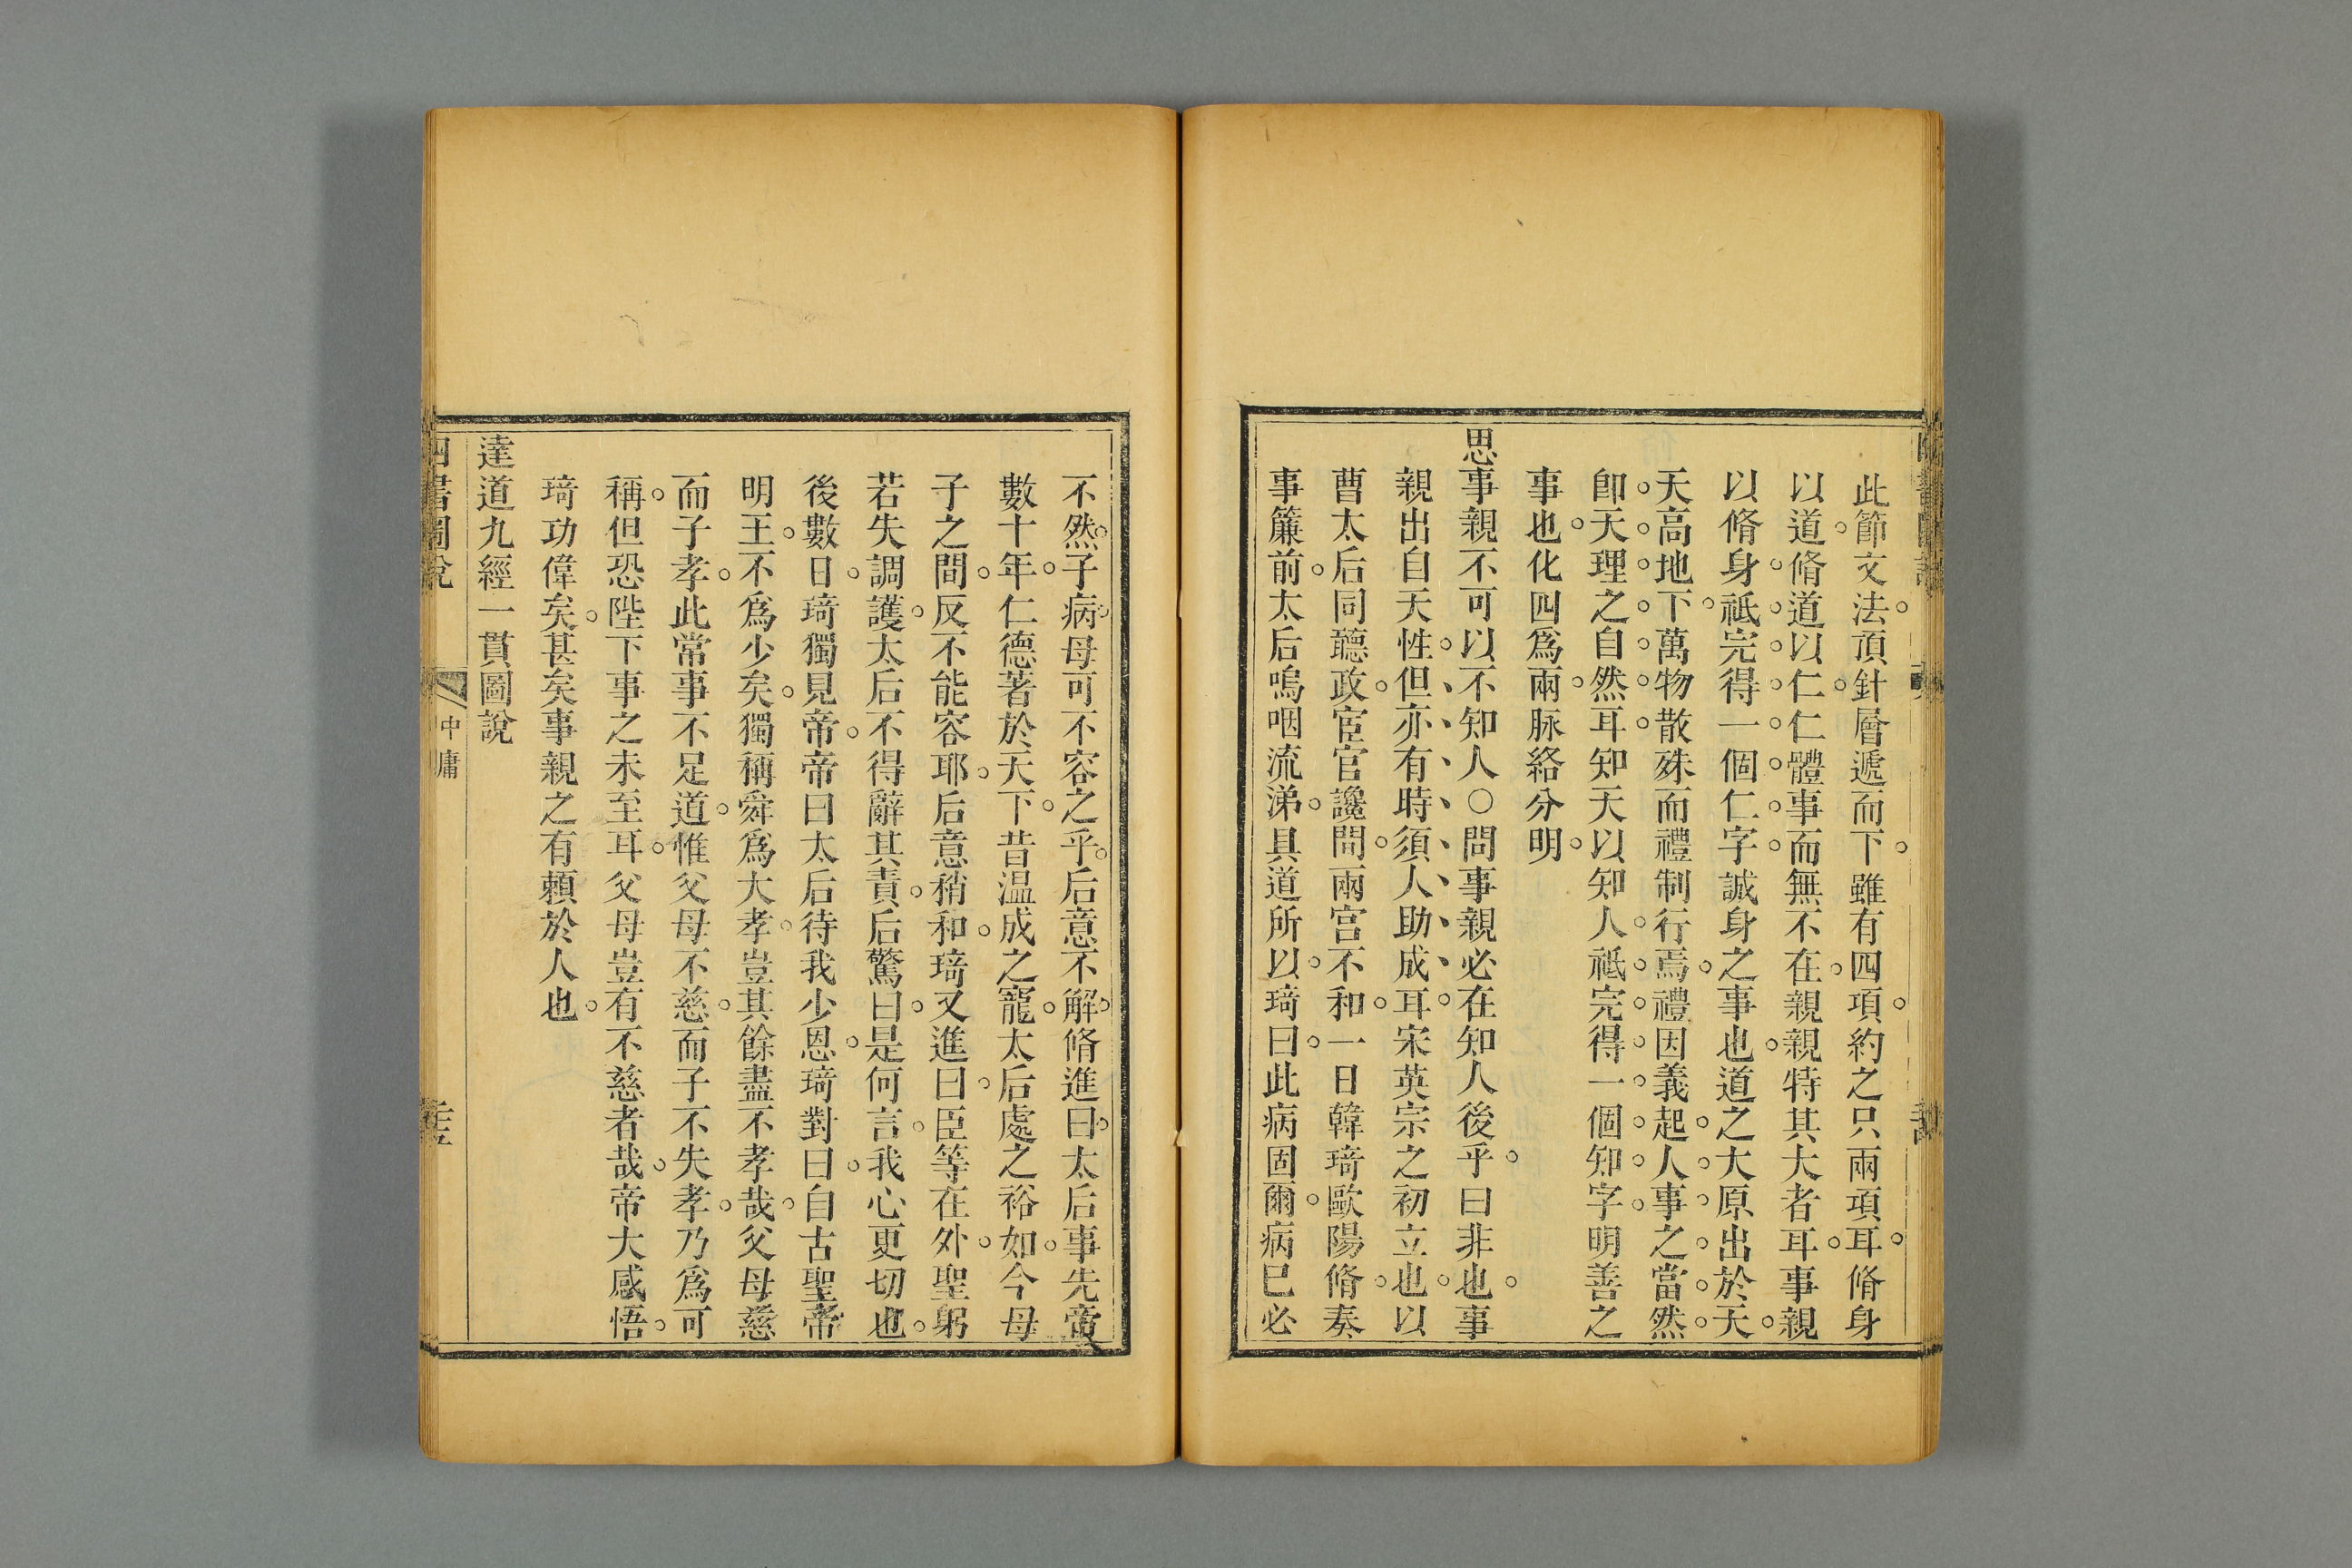 此節文法頂針層遞而下雖有四項約之只兩項耳脩身
以道脩道以仁仁體事而無不在親親特其大者耳事親
以脩身祗完得一個仁字誠身之事也道之大原出於天
天高地下萬物散殊而禮制行焉禮因義起人事之當然
卽天理之自然耳知天以知人祗完得一個知字明善之
事也化四爲兩脉絡分明
思事親不可以不知人○問事親必在知人後乎曰非也事
親出自天性但亦有時須人助成耳宋英宗之初立也以
曹太后同聽政宦官讒間兩宮不和一日韓琦歐陽脩奏
事簾前太后嗚咽流涕具道所以琦曰此病固爾病已必
不然子病母可不容之乎后意不解脩進曰太后事先帝
數十年仁德著於天下昔温成之寵太后處之裕如今母
子之間反不能容耶后意稍和琦又進曰臣等在外聖躬
若失調護太后不得辭其責后驚曰是何言我心更切也
後數日琦獨見帝帝曰太后待我少恩琦對曰自古聖帝
明王不爲少矣獨稱舜爲大孝豈其餘盡不孝哉父母慈
而子孝此常事不足道惟父母不慈而子不失孝乃爲可
稱但恐陛下事之未至耳父母豈有不慈者哉帝大感悟
琦功偉矣甚矣事親之有賴於人也
達道九經一貫圖說
四書圖說
中庸